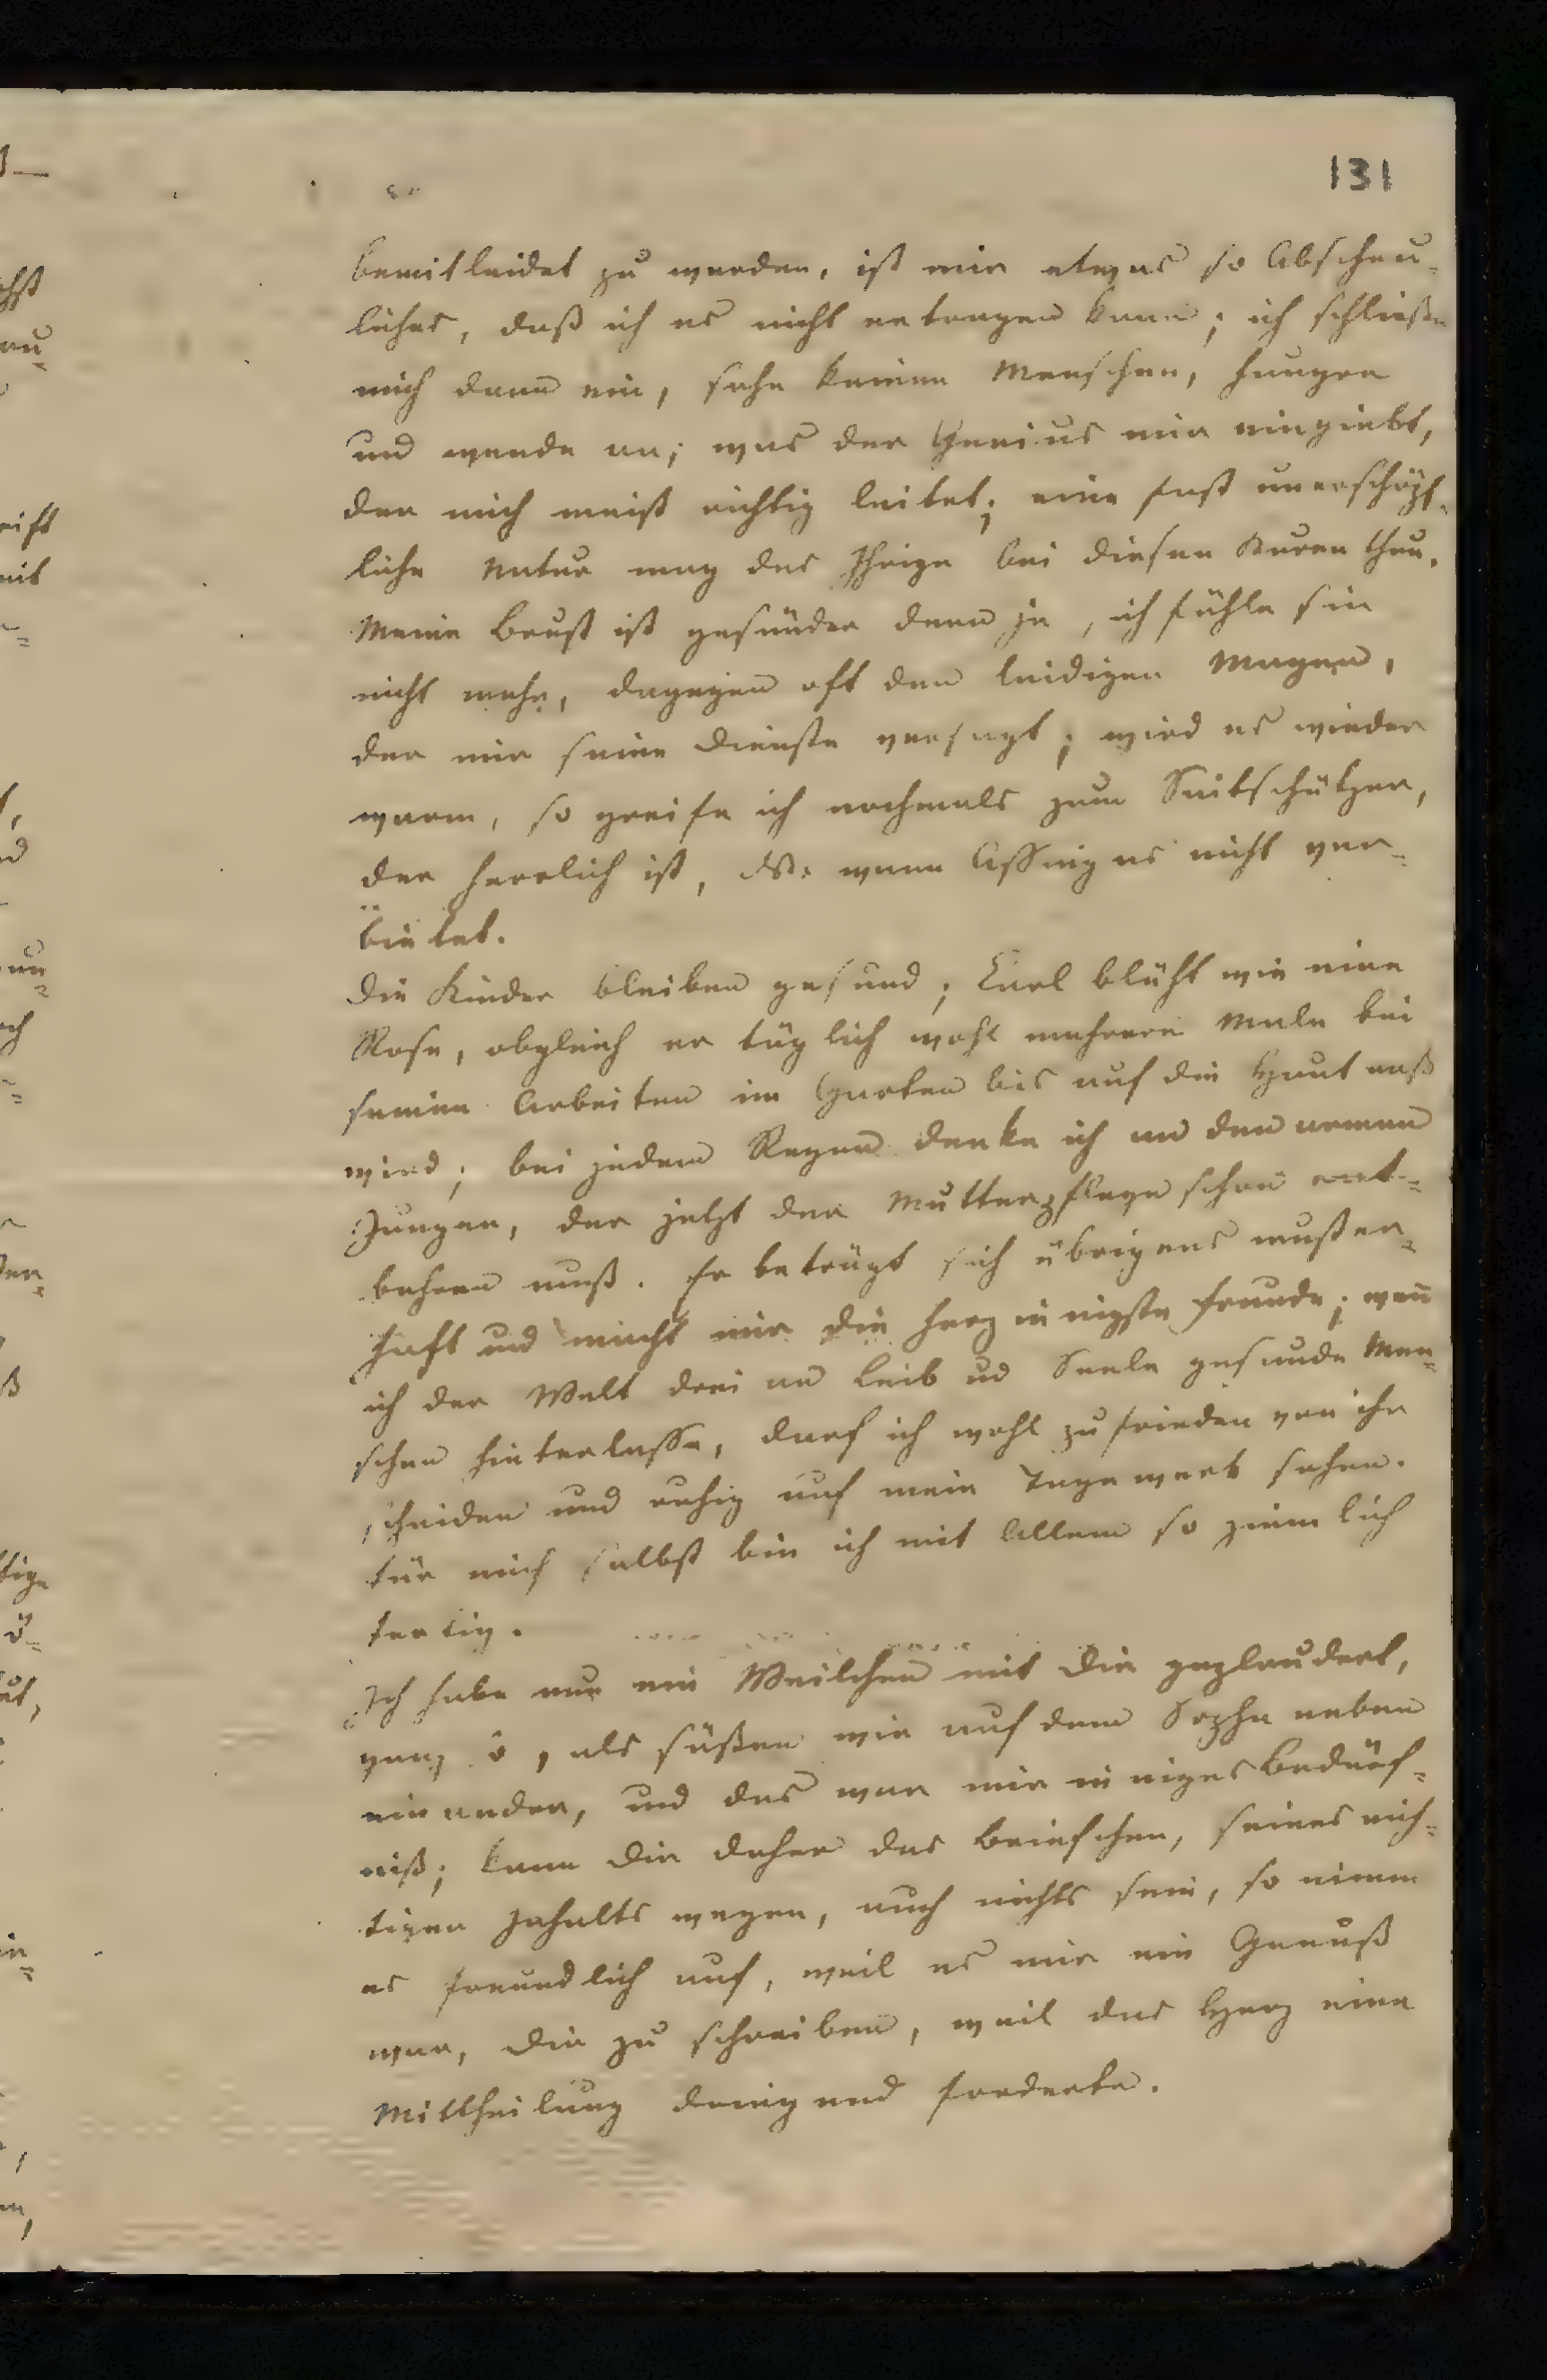 131
bemitleidet zu werden, ist mir etwas so Abscheu-
liches, daß ich es nicht ertragen kann; ich schließe
mich dann ein, sehe keinen Menschen, hungre
und wende an; was der Genius mir eingiebt,
der mich meist richtig leitet; eine fast unerschöpf-
liche Natur mag das Ihrige bei diesen Kuren thun.
Meine Brust ist gesünder denn je, ich fühle sie
nicht mehr, dagegen oft den leidigen Magen,
der mir seine Dienste versagt; wird es wieder
warm, so greife ich nochmals zum Saitschützer,
der herrlich ist, wenn Assing es nicht ver-
bietet.
Die Kinder bleiben gesund; Carl blüht wie eine
Rose, obgleich er täglich wohl mehrere Male bei
seinen Arbeiten im Garten bis auf die Haut naß
wird; bei jedem Regen denke ich an den armen
Jungen, der jetzt der Mutterpflege schon ent-
behren muß. Er beträgt sich übrigens muster-
haft und macht mir die herzinnigste Freude; wenn
ich der Welt drei an Leib und Seele gesunde Men-
schen hinterlasse, darf ich wohl zufrieden von ihr
scheiden und ruhig auf mein Tagewerk sehen.
Für mich selbst bin ich mit Allem so ziemlich
fertig.
Ich habe nur ein Weilchen mit Dir geplaudert,
ganz so, als säßen wir auf dem Sopha neben
einander, und das war mir inniges Bedürf-
niß; kann Dir daher das Briefchen, seines nich-
tigen Inhalts wegen, auch nichts sein, so nimm
es freundlich auf, weil es mir ein Genuß
war, Dir zu schreiben, weil das Herz eine
Mittheilung dringend forderte.